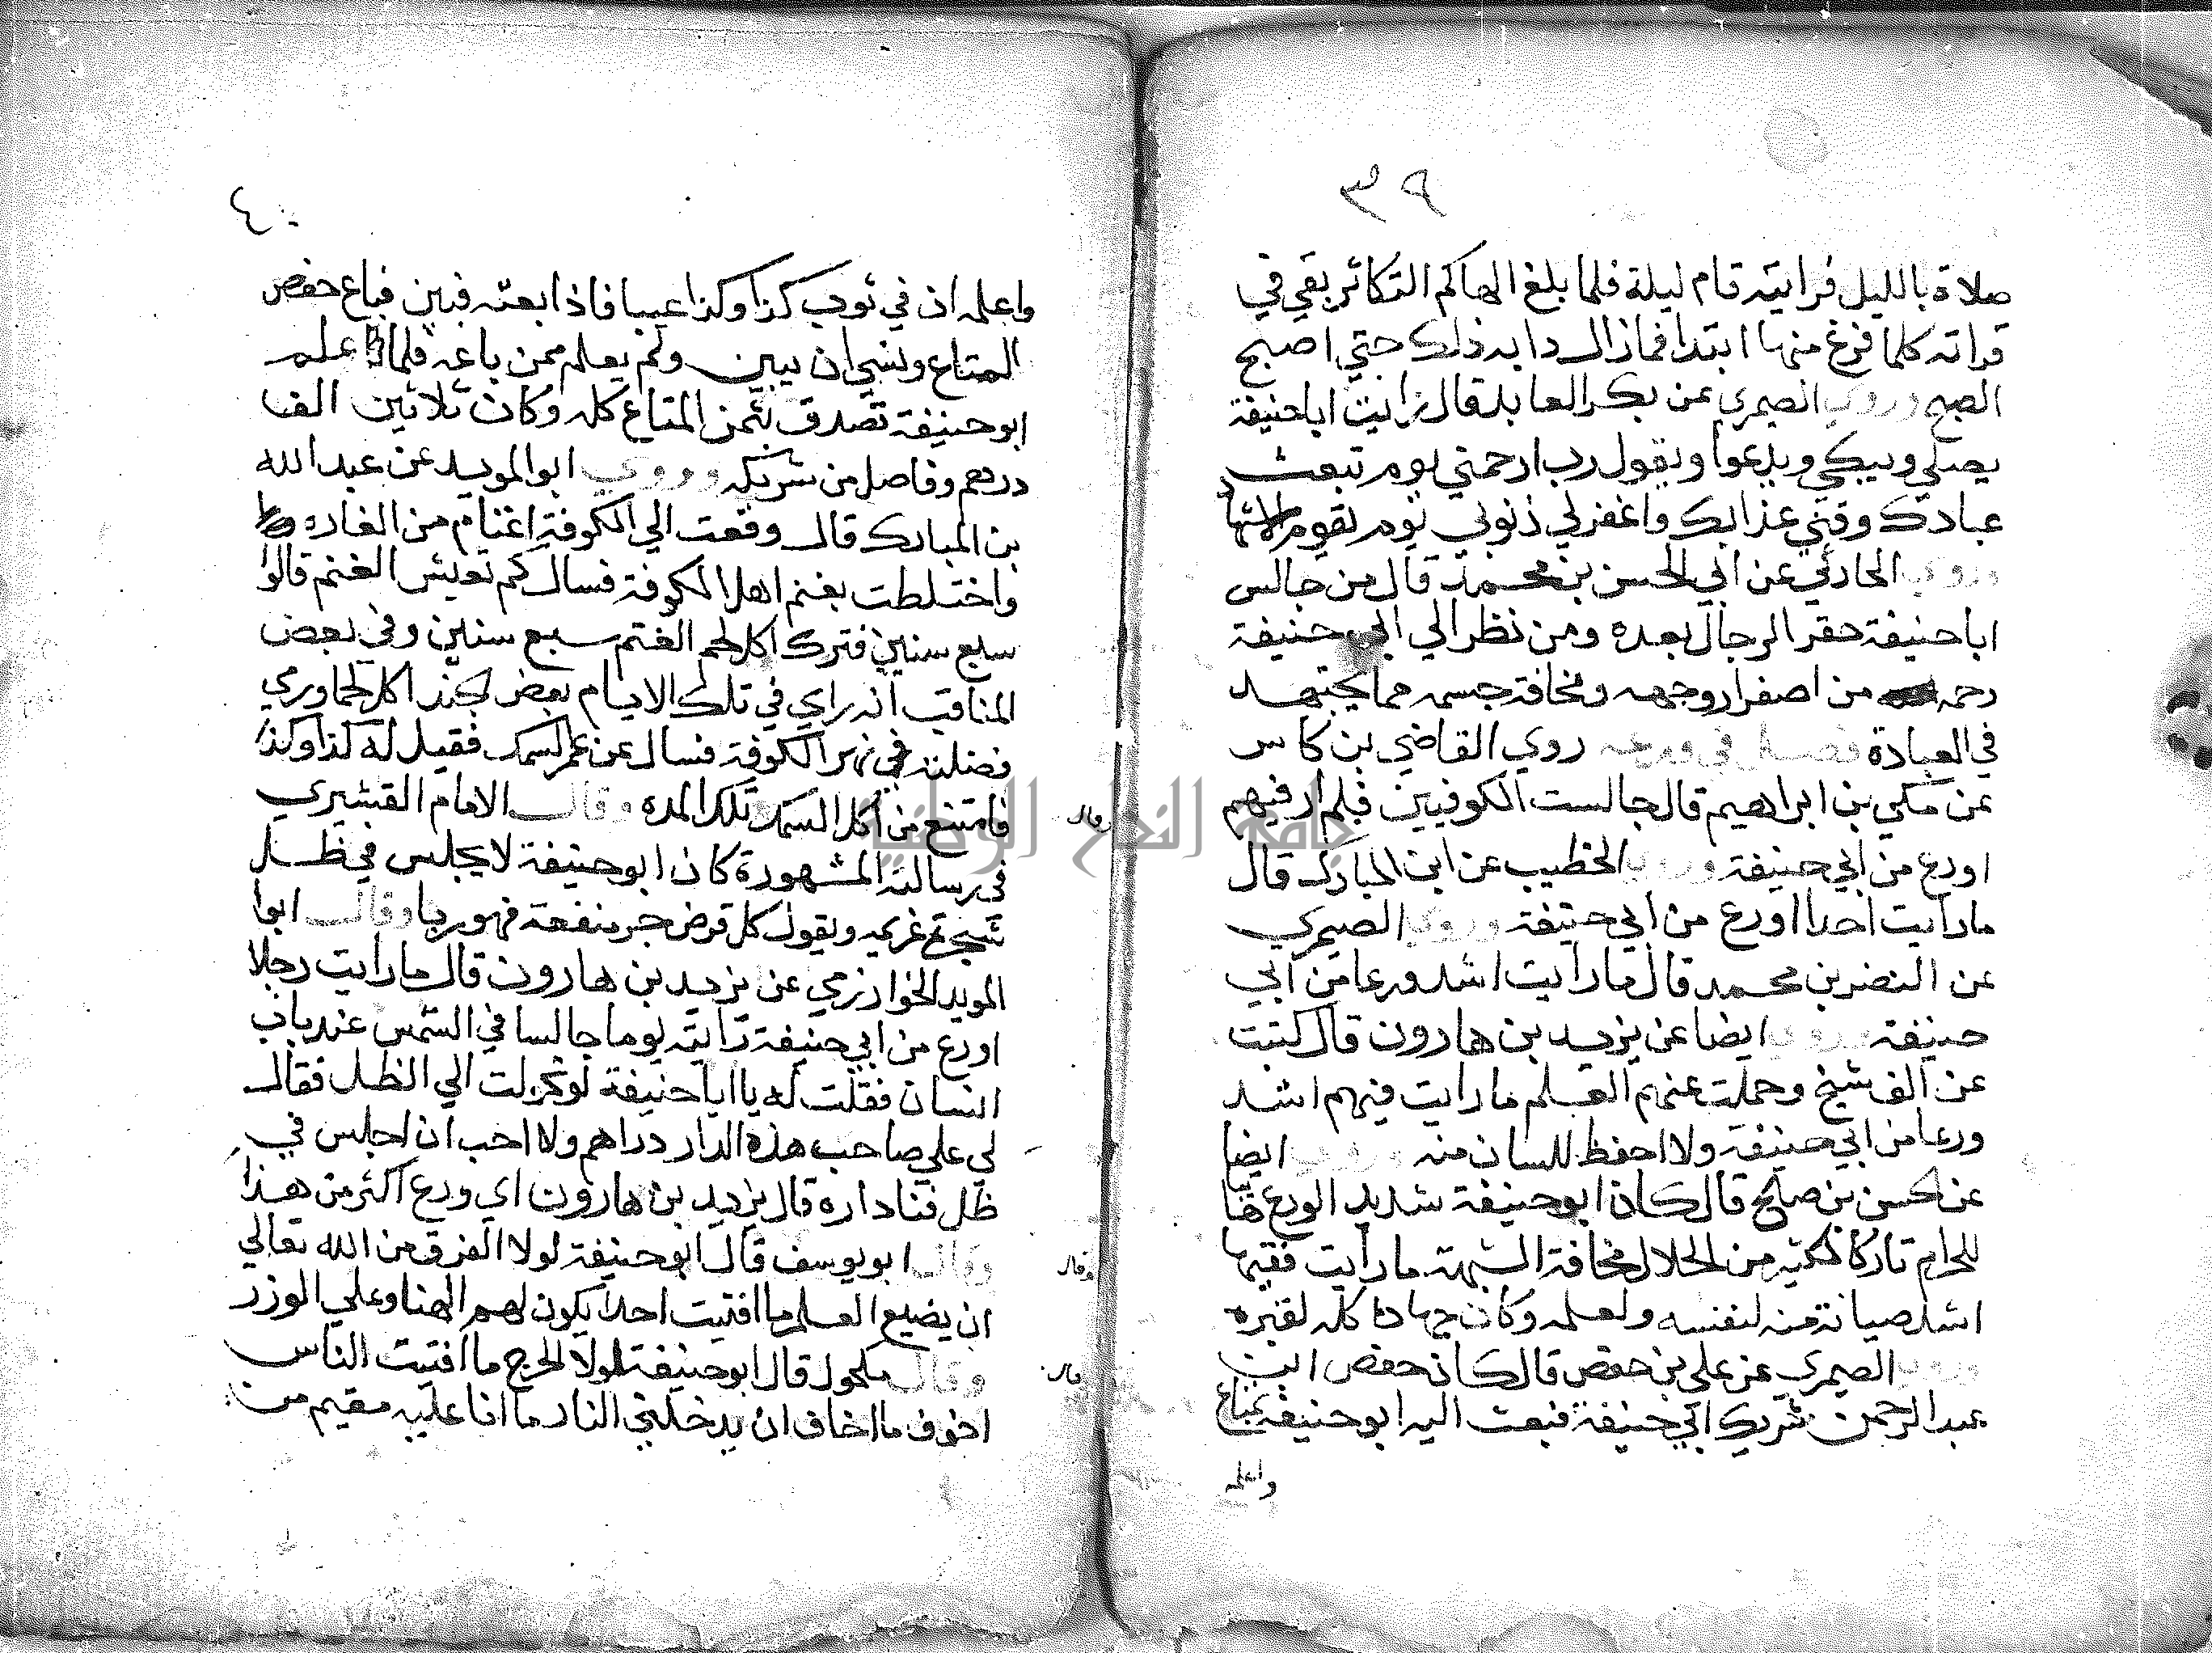 ٣٩
صلاة بالليل فرايته قام ليلة فلما بلغ الهاكم التكاثر بقي في
قراته كلما فرغ منها ابتدا فمازال دابه ذلك حتي اصبح
الصبح وروي الصيمري عن بكر العابد قال رايت اباحنيفة
يصلي ويبكي ويدعوا ويقول رب ارحمني يوم تبعث
عبادك وقني عذابك واغفرلي ذنوبي يوم يقوم الاشهاد
وروي الحارثي عن ابي الحسن بن محمد قال من جالس
اباحنيفة حقر الرجال بعده ومن نظر الي ابي حنيفة
رحمه من اصفرار وجهه ونحافة جسمه مما يجتهد
في العبادة فصل في ورعه روي القاضي بن كاس
عن مكي بن ابراهيم قال جالست الكوفيين فلم ار فيهم
اورع من ابي حنيفة وروي الخطيب عن ابن المبارك قال
مارايت احدا اورع من ابي حنيفة وروي الصيمري
عن النضر بن محمد قال مارايت اشد ورعا من ابي
حنيفة وروي ايضا عن يزيد بن هارون قال كتبت
عن الف شيخ وحملت عنهم العلم مارايت فيهم اشد
ورعا من ابي حنيفة ولا احفظ للسان منه وروي ايضا
عن الحسن بن صالح قال كان ابوحنيفة شديد الورع
للحرام تاركا لكثير من الحلال مخافة الشبهة مارايت فقيها
اشد صيانة منه لنفسه ولعلمه وكان جهاده كله لقبره
وروي الصيمري عن علي بن حفص قال كان حفص ابن
عبد الرحمن شريك ابي حنيفة فبعث اليه ابو حنيفة بمتاع
واعلمه
٤٠
واعلمه ان في ثوب كذا وكذا عيبا فاذا بعته فبين فباع حفص
المتاع ونسي ان يبين ولم يعلم ممن باعه فلما علم
ابوحنيفة تصدق بثمن المتاع كله وكان ثلاثين الف
درهم وفاصل من شريكه وروي ابوالمويد عن عبد الله
بن المبارك قال وقعت الي الكوفة اغنام من الغاره
واختلطت بغنم اهل الكوفة فسال كم تعيش الغنم قالوا
سبع سنين فترك اكل لحم الغنم سبع سنين وفي بعض
المناقب انه راي في تلك الايام بعض الجند اكل لحما ورمي
فضلته في نهر الكوفة فسال عن عمر السمك فقيل له كذا وكذا
فامتنع من اكل السمك تلك المده وقال الامام القشيري
وقال
في رسالته المشهورة كان ابوحنيفة لايجلس في ظل
شجرة غريمه ويقول كل قرض جر منفعة فهو ربا وقال ابوا
المويد الخوارزمي عن يزيد بن هارون قال مارايت رجلا
اورع من ابي حنيفة رايته يوما جالسا في الشمس عند باب
انسان فقلت له يا اباحنيفة لو تحولت الي الظل فقال
لي علي صاحب هذه الدار دراهم ولا احب ان اجلس في
ظل فنا داره قال يزيد بن هارون اي ورع اكثر من هذا
وقال ابويوسف قال ابوحنيفة لولا الفرق من الله تعالي
وقال
ان يضيع العلم ما افتيت احدا يكون لهم الهنا وعلي الوزر
وقال مكحول قال ابوحنيفة لولا الحرج ما افتيت الناس
وقال
اخوف ما اخاف ان يدخلني النار ما انا عليه مقيم من
جامعة النجاح الوطنية